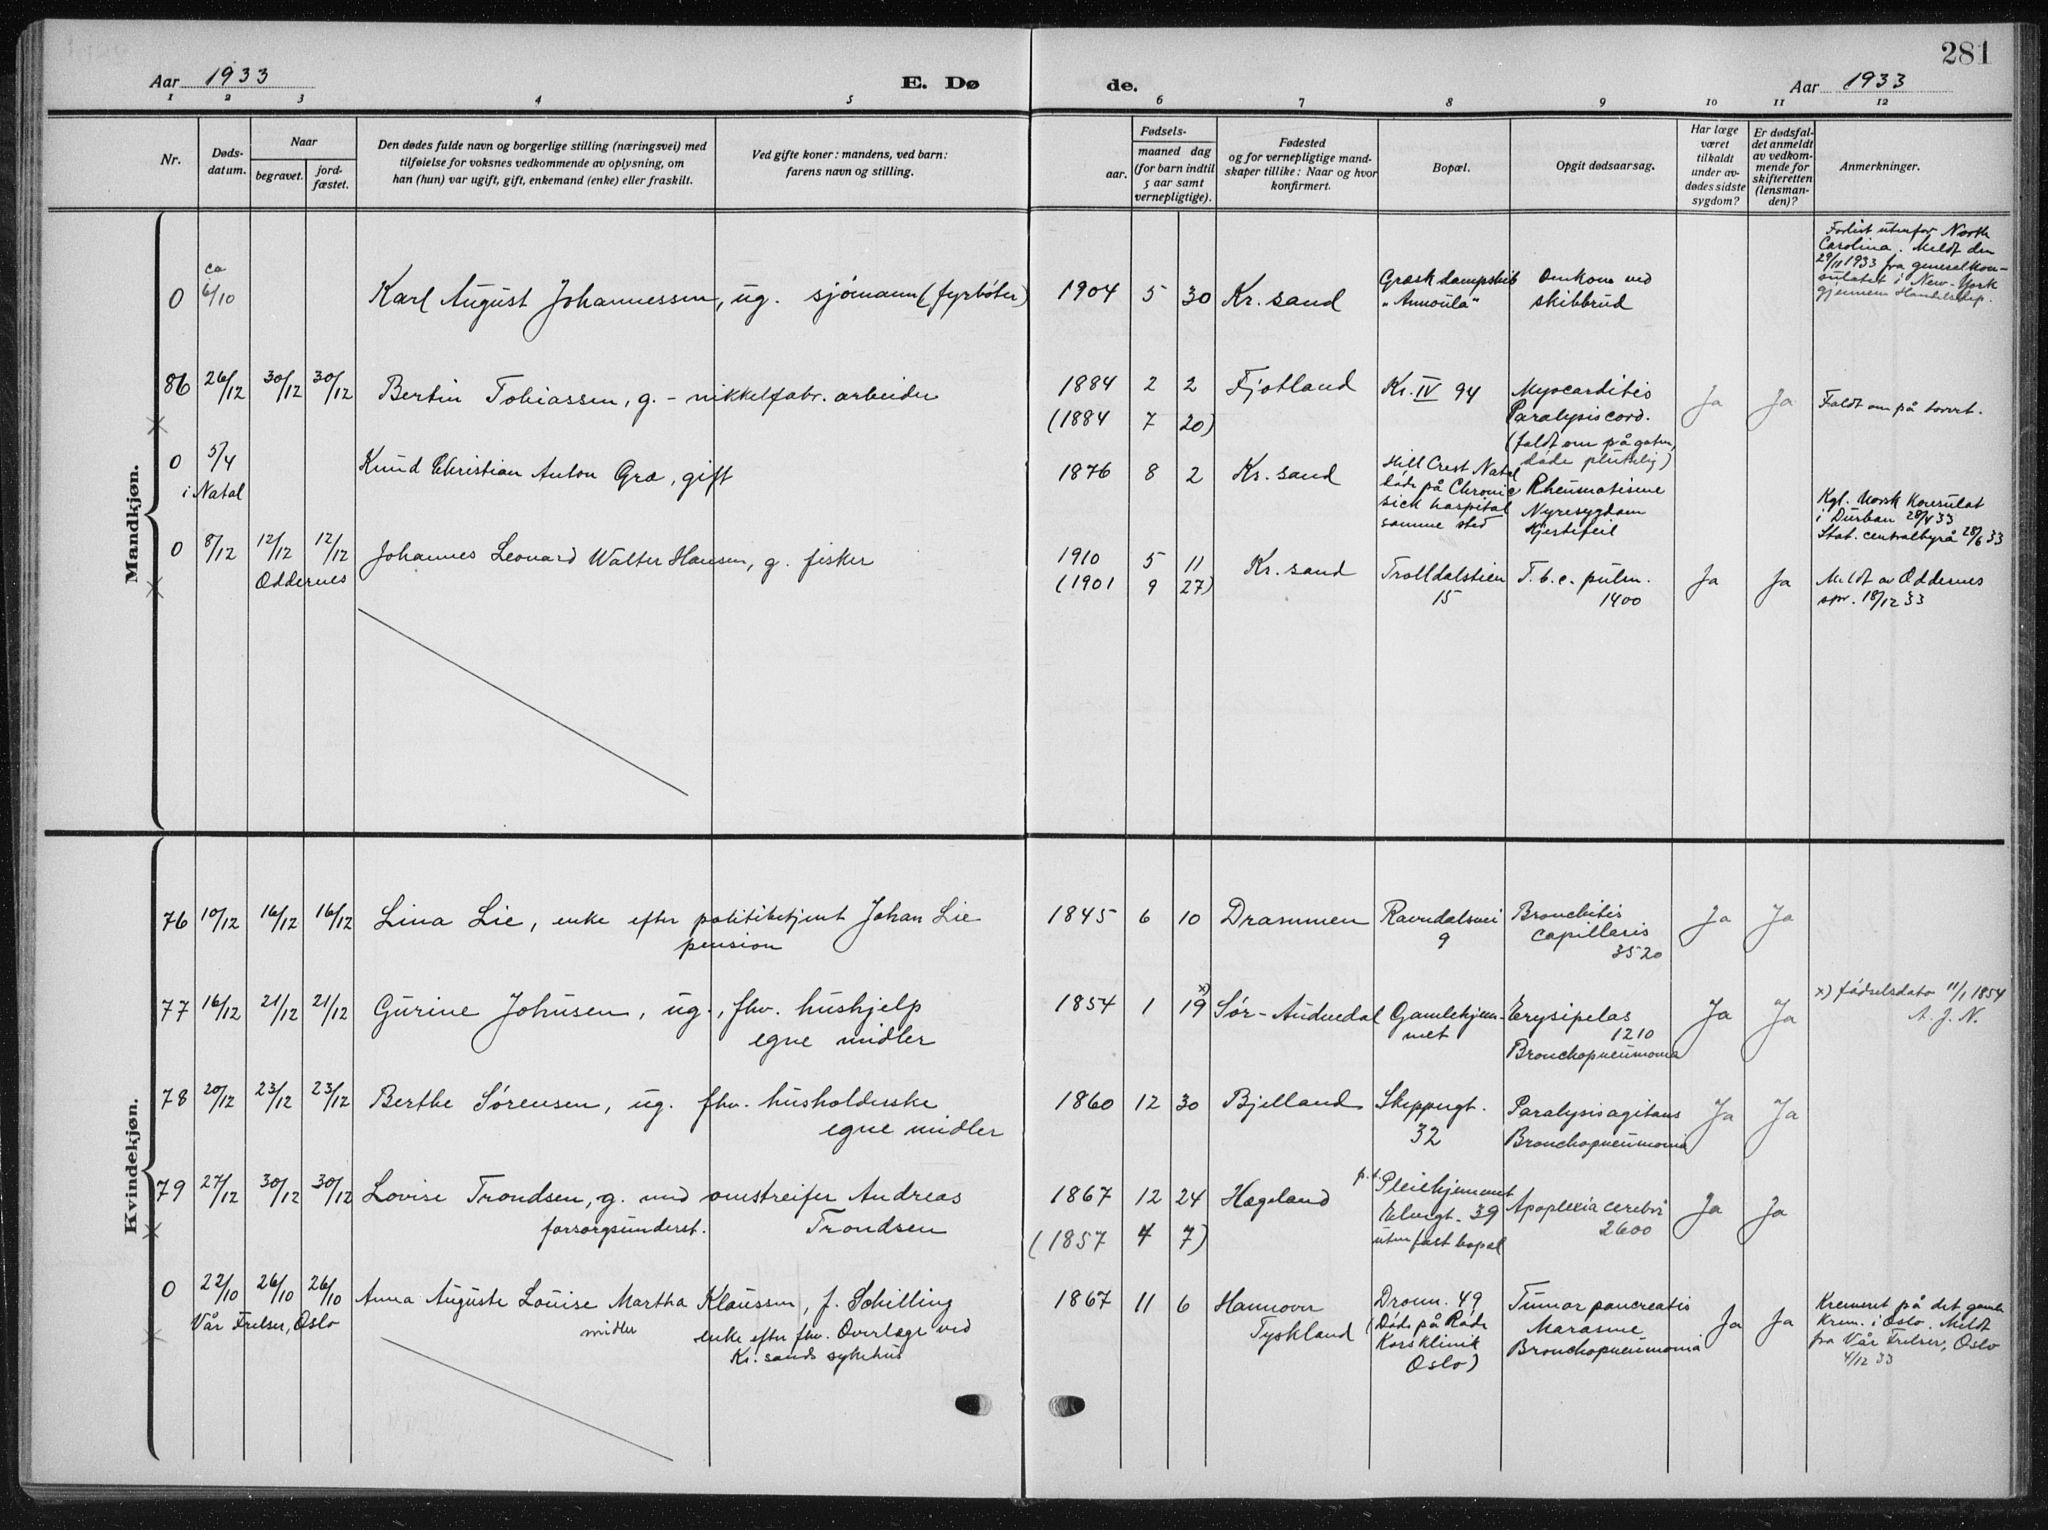 281
Aar 1933
E. Dø
de.
Aar 1933
1 2 3 4 5 6 7 8 9 10 11 12
Nr.
Døds-
datum.
Naar
begravet.
jord-
fæstet.
Den dødes fulde navn og borgerlige stilling (næringsvei) med
tilføielse for voksnes vedkommende av oplysning, om
han (hun) var ugift, gift, enkemand (enke) eller fraskilt.
Ved gifte koner: mandens, ved barn:
farens navn og stilling.
aar.
Fødsels-
maaned dag
(for barn indtil
5 aar samt
vernepligtige).
Fødested
og for vernepligtige mand-
skaper tillike: Naar og hvor
konfirmert.
Bopæl.
Opgit dødsaarsag.
Har læge
været
tilkaldt
under av-
dødes sidste
sygdom?
Er dødsfal-
det anmeldt
av vedkom-
mende for
skifteretten
(lensman-
den)?
Anmerkninger.
Mandkjøn.
0
ca
6/10
Karl August Johannessen, ug. sjømann (fyrbøter)
1904 5 30 Kr. sand
Græsk dampskib
"Annoula"
Omkom ved
skibbrud
Forlist utenfor North
Carolina. Meldt den
29/11 1933 fra generalkon-
sulatet i New-York
gjennem Handelsdep.
86 26/12 30/12 30/12 Bertin Tobiassen, g. - nikkelfabr. arbeider
1884 2 2
(1884 7 20)
Fjotland
Kr. IV 94
Myocarditis
Paralysis cord.
(faldt om på gaten,
døde pludselig)
Ja Ja
Faldt om på torvet.
0 5/4
i Natal
Knud Christian Anton Gra, gift
1876 8 2 Kr. sand
Hill Crest Natal
døde på Chronic
sick hospital
samme sted
Rheumatisme
Nyresygdom
Hjertefeil
Kgl. Norsk Konsulat
i Durban 28/4 33
Stat. centralbyrå 28/6 33
0 8/12 12/12 12/12
Oddernes
Johannes Leonard Walter Hansen, g. fisker
1910 5 11
(1901 9 27)
Kr. sand
Trolldalstien
15
T. b. c. pulm.
1400
Ja Ja
Meldt av Oddernes
spr. 18/12 33
Kvindekjøn.
76 10/12 16/12 16/12 Lina Lie, enke efter politibetjent Johan Lie
pension
1845 6 10 Drammen
Ravndalsvei
9
Bronchitis
capillaris
3520
Ja Ja
77 16/12 21/12 21/12 Gurine Johnsen, ug., fhv. hushjelp
egne midler
1854 1 19 x) Sør-Audnedal
Gamlehjem-
met
Erysipelas
1210
Bronchopneumonia
Ja Ja
x) fødselsdato 11/1 1854
A. J. N.
78 20/12 23/12 23/12 Berthe Sørensen, ug. fhv. husholderske
egne midler
1860 12 30 Bjelland
Skippergt.
32
Paralysis agitans
Bronchopneumonia
Ja Ja
79 27/12 30/12 30/12 Lovise Trondsen, g. med omstreifer Andreas
forsorgsunderst. Trondsen
1867 12 24
(1857 4 7)
Hægeland
p.t. Pleiehjemmet
Elvegt. 39
uten fast bopel
Apoplexia cerebri
2600
Ja Ja
0 22/10 26/10 26/10
Vår Frelser, Oslo
Anna Auguste Louise Martha Klaussen, f. Schilling
midler
enke efter fhv. Overlæge ved
Kr. sands sykehus
1867 11 6
Hannover
Tyskland
Dronn. 49
(Døde på Røde
Kors Klinik
Oslo)
Tumor pancreatis
Marasme
Bronchopneumonia
Ja Ja
Kremeret på det gamle
Krem. i Oslo. Meldt
fra Vår Frelser, Oslo
4/12 33